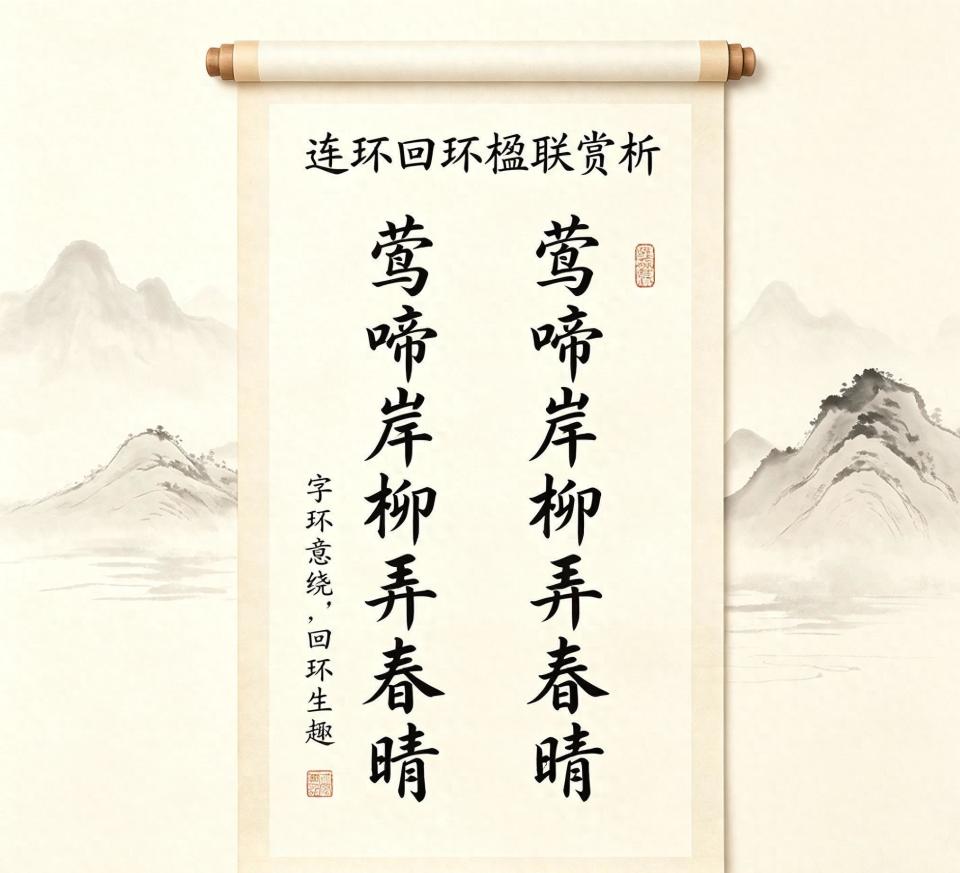 连环回环楹联赏析
莺啼岸柳弄春晴
莺啼岸柳弄春晴
字环意绕，回环生趣